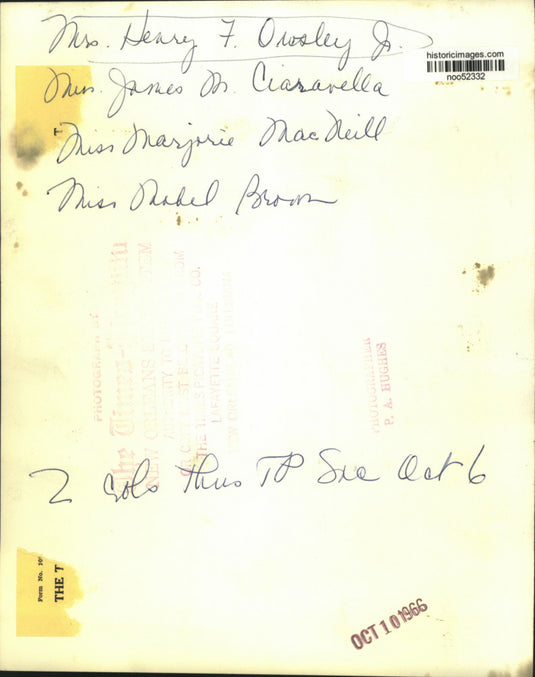 Mrs. Henry F. Owsley Jr.
historicimages.com
noo52332
Mrs. James M. Ciaravella
T
Miss Marjorie MacNeill
Miss Mabel Brown
PHOTOGRAPH BY
The Times-Picayune
NEW ORLEANS
THE TIMES-PICAYUNE PUB. CO.
LAFAYETTE SQUARE
NEW ORLEANS, LOUISIANA
PHOTOGRAPHER
P. A. HUGHES
2 cols Thurs TP Soc Oct 6
Form No. 10
THE T
OCT 10 1966